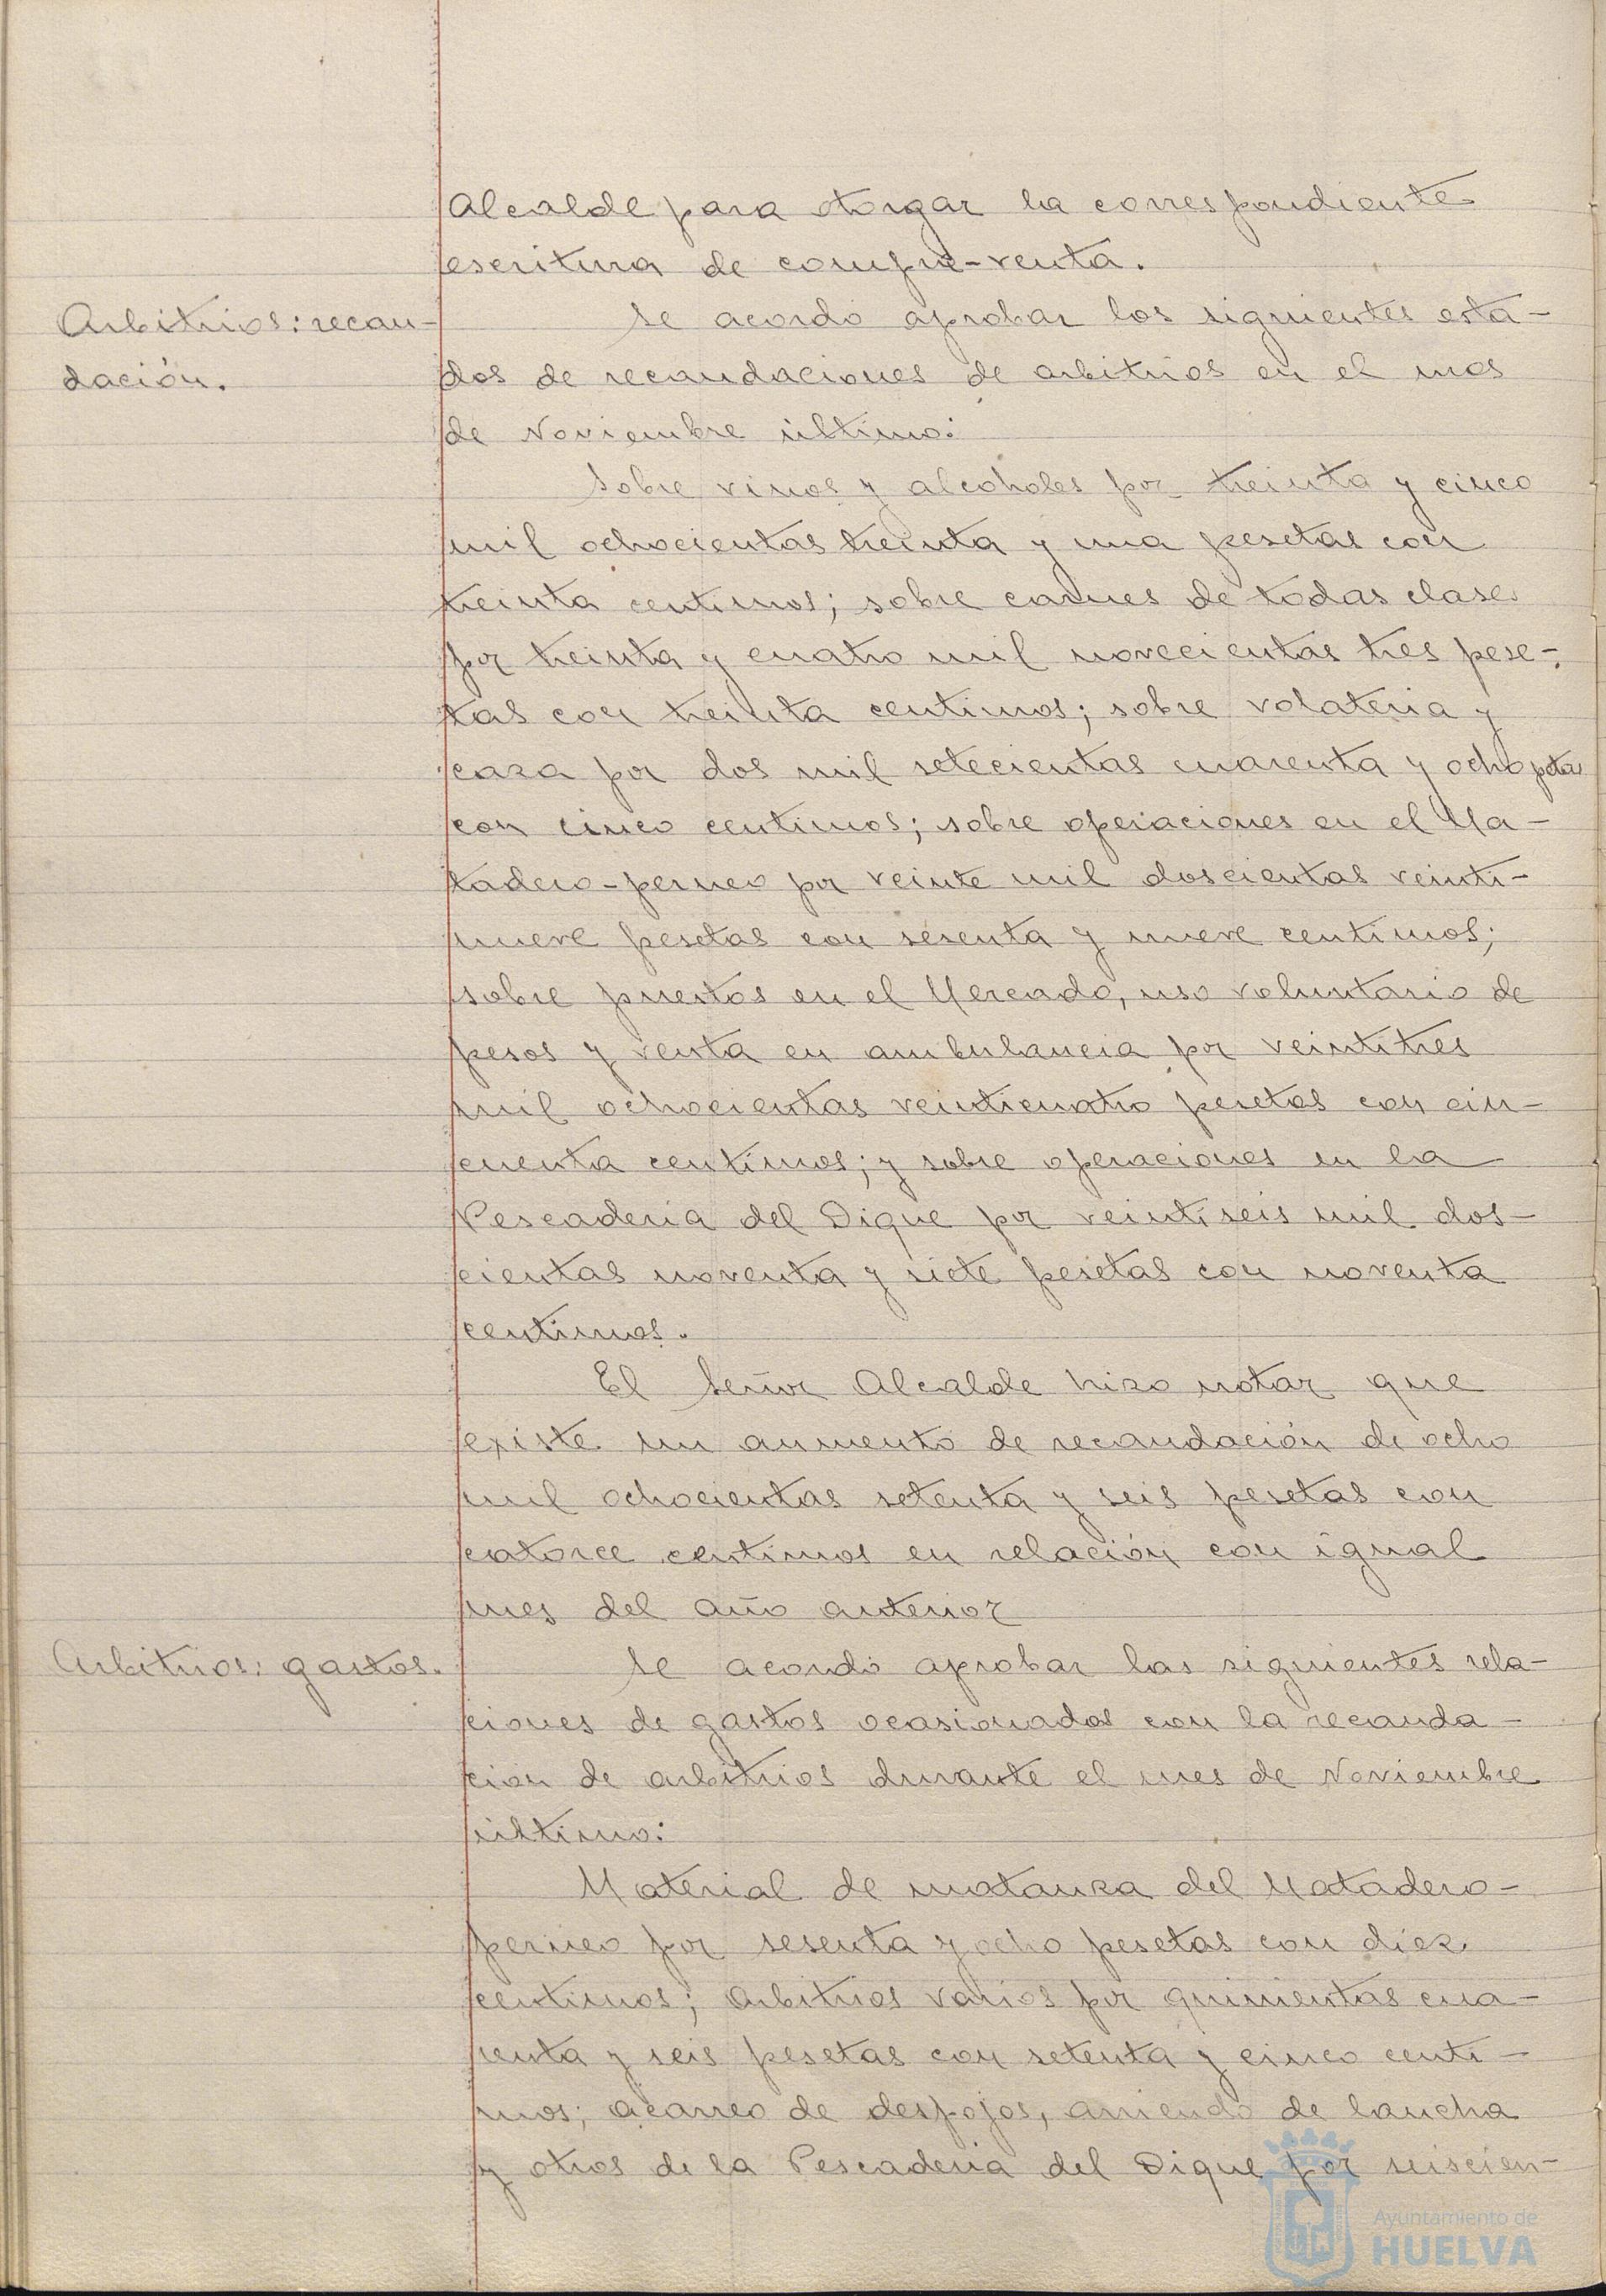 Alcalde para otorgar la correspondiente
escritura de compra-venta.
Arbitrios: recau-
dación.
Se acordó aprobar los siguientes esta-
dos de recaudaciones de arbitrios en el mes
de Noviembre último:
Sobre vinos y alcoholes por treinta y cinco
mil ochocientas treinta y una pesetas con
treinta centimos; sobre carnes de todas clases
por treinta y cuatro mil novecientas tres pese-
tas con treinta centimos; sobre volateria y
caza por dos mil setecientas cuarenta y ocho ptas
con cinco centimos; sobre operaciones en el Ma-
tadero-perneo por veinte mil doscientas veinti-
nueve pesetas con sesenta y nueve centimos;
sobre puestos en el Mercado, uso voluntario de
pesos y venta en ambulancia por veintitres
mil ochocientas veinticuatro pesetas con cin-
cuenta centimos; y sobre operaciones en la
Pescaderia del Dique por veintiseis mil dos-
cientas noventa y siete pesetas con noventa
centimos.
El Señor Alcalde hizo notar que
existe un aumento de recaudación de ocho
mil ochocientas setenta y seis pesetas con
catorce centimos en relación con igual
mes del año anterior
Arbitrios: gastos.
Se acordó aprobar las siguientes rela-
ciones de gastos ocasionados con la recauda-
cion de arbitrios durante el mes de Noviembre
último:
Material de matanza del Matadero-
perneo por sesenta y ocho pesetas con diez
centimos; arbitrios varios por quinientas cua-
renta y seis pesetas con setenta y cinco centi-
mos; acarreo de despojos, arriendo de lancha
y otros de la Pescaderia del Dique por seiscien-
Ayuntamiento de
HUELVA